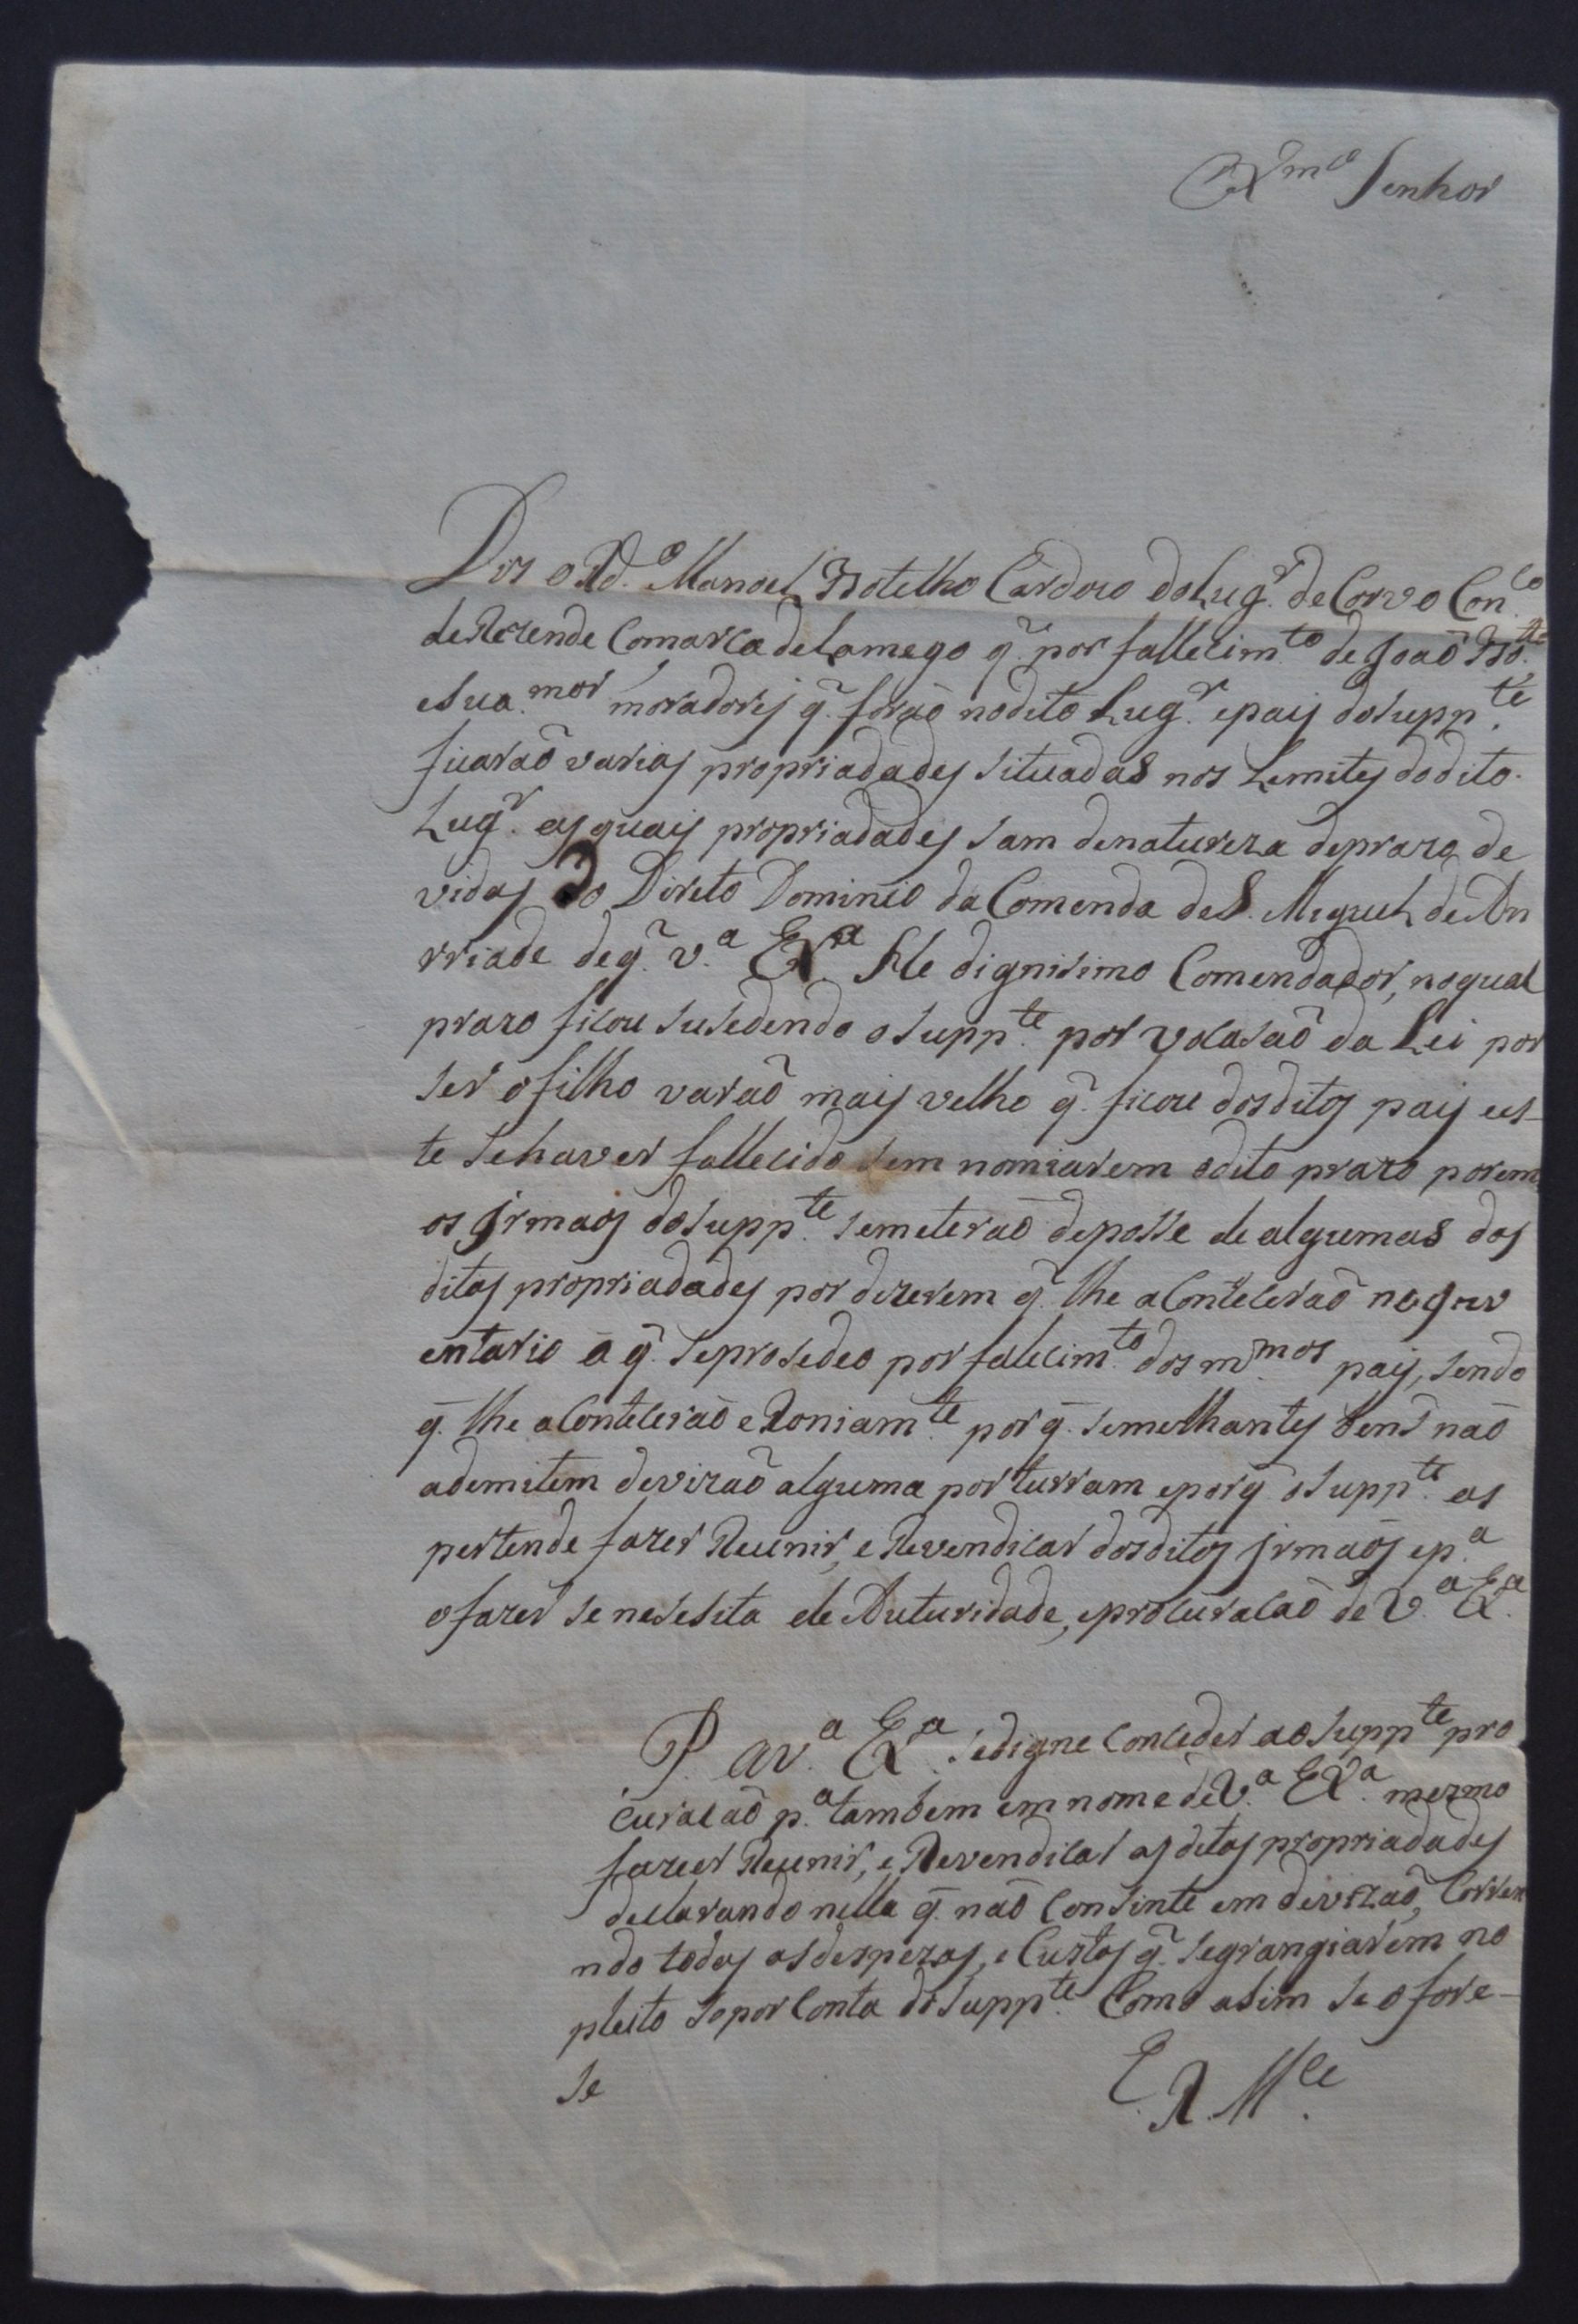 Exmo Senhor
Dis o Rdo. Manoel Botelho Cardozo do Lugr. de Corvo Conco.
de Rezende Comarca de Lamego q. por fallecimto. de João Bote.
e sua mer moradores q. forão no dito Lugr. e pais do suppte.
ficarão varias propriadades situadas nos Lemites do dito
Lugr. as quais propriadades sam de natureza de prazo de
vidas do Direto Dominio da Comenda de S. Miguel de An
rriade de q. v.a Ex.a He dignisimo Comendador, no qual
prazo ficou susedendo o suppte. por vocasão da Lei por
ser o filho varão mais velho q. ficou dos ditos pais es-
te se haver fallecido sem nomiarem o dito prazo porem
os Jrmaos do suppte. se meterão de posse de algumas das
ditas propriadades por dizerem q. lhe aContecerão no Jnv
entario a q. se prosedeo por falecimto. dos mmos pais, sendo
q. lhe aContecerão eRoniamte. por q. semelhantes bens não
ademitem devizão alguma por turram e porq. o suppte. as
pertende fazer Reunir, e Revendicar dos ditos jrmaos e p.a
o fazer se nesesita de Auturidade, e procuracão de V.a Ex.a
P. a v.a Ex.a se digne Conceder ao suppte. pro
curacão p.a tambem em nome de V.a Ex.a mezmo
fazer Reunir, e Revendicar as ditas propriadades
declarando nella q. não Consinte em devizão, Corren
ndo todas as despezas, e Custas q. se grangiarem no
pleito so por Conta do suppte. Como asim se o fore-
se
E. R. Mce.